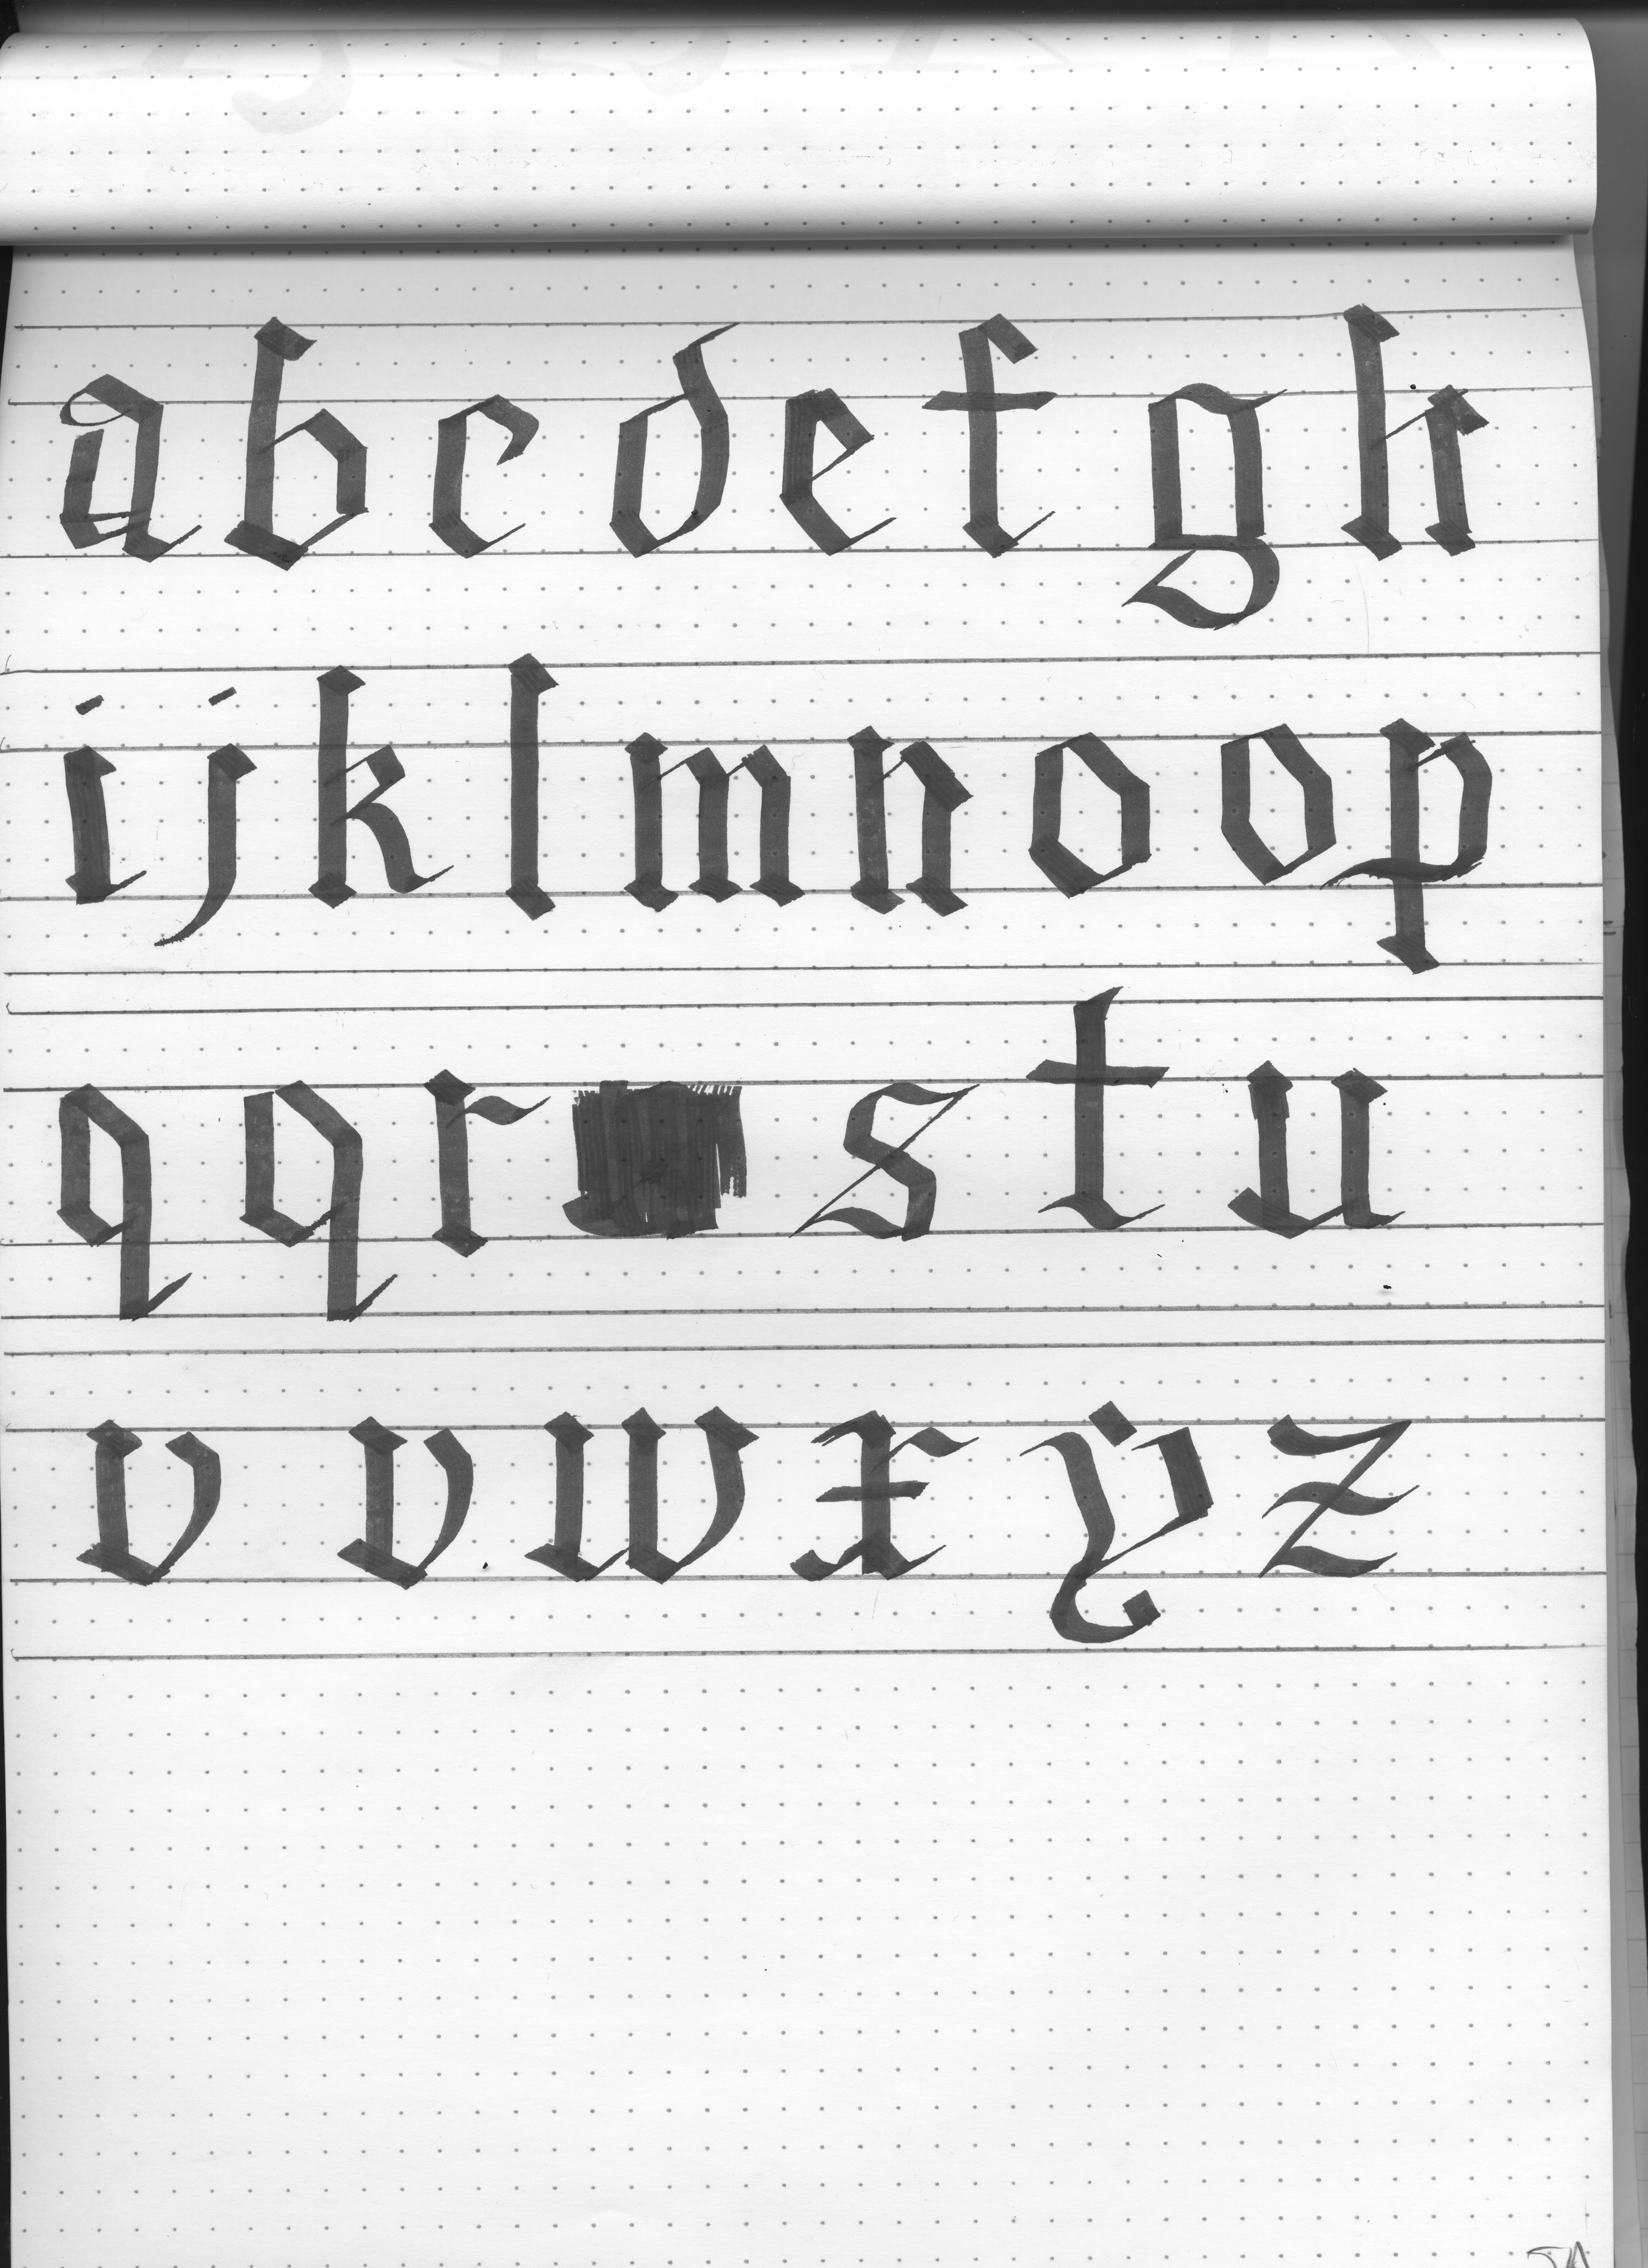 a b c d e f g h
i j k l m n o o p
q q r s t u
v v w x y z